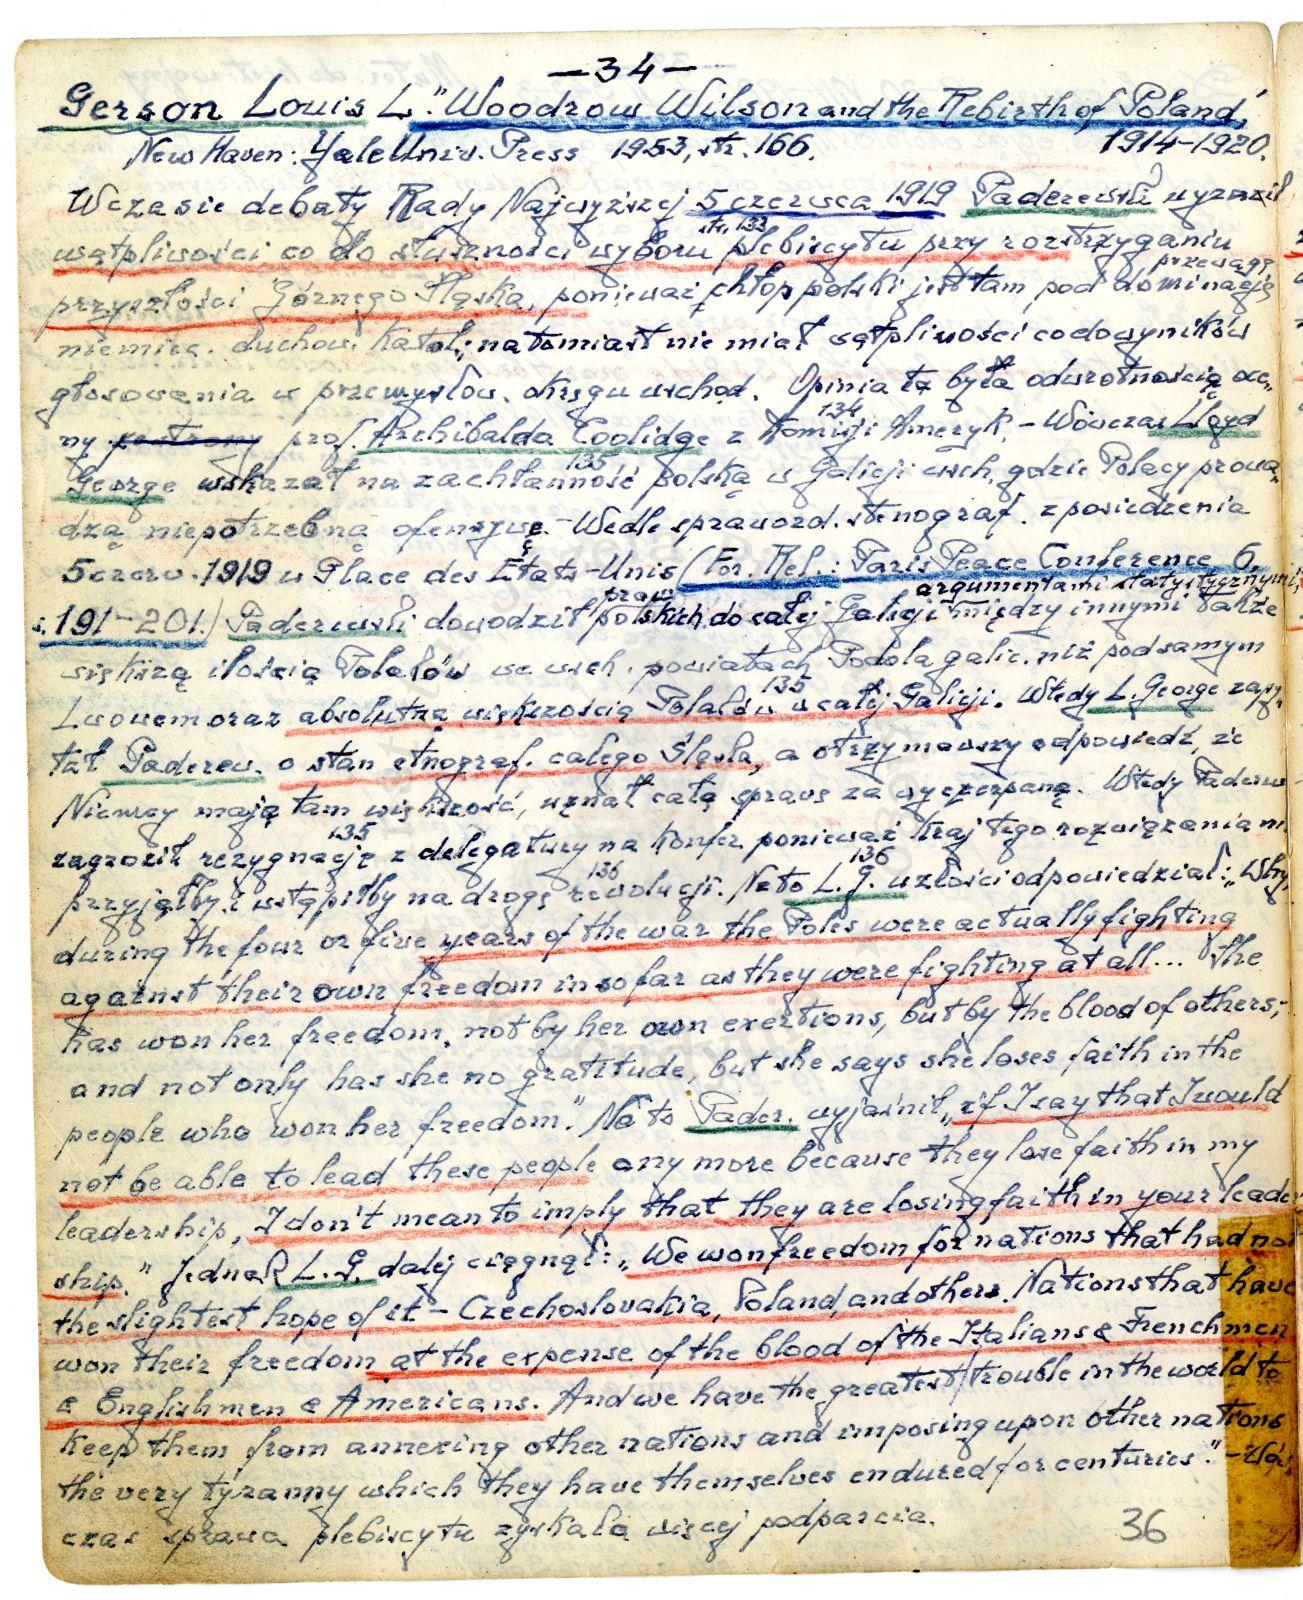 —34—
Gerson Louis L. "Woodrow Wilson and the Rebirth of Poland,"
New Haven: Yale Univ. Press 1953, str. 166. 1914–1920.
W czasie debaty Rady Najwyższej 5 czerwca 1919 Paderewski wyraził
str. 133
wątpliwości co do słuszności wyboru plebiscytu przy rozstrzyganiu
przewagą
przyszłości Górnego Śląska, ponieważ chłop polski jest tam pod dominacją
niemiec. duchow. katol.; natomiast nie miał wątpliwości co do wyników
głosowania w przemysłow. okręgu wschod. Opinia ta była odwrotnością oce-
134
ny prof. Archibalda Coolidge z Komisji Ameryk. – Wówczas Lloyd
135
George wskazał na zachłanność polską w Galicji wsch, gdzie Polacy prowa-
dzą niepotrzebną ofenzywę. – Wedle sprawozd. stenograf. z posiedzenia
5 czerw. 1919 w Place des États-Unis (For. Rel.: Paris Peace Conference 6,
praw argumentami statystycznymi,
s. 191–201.) Paderewski dowodził polskich do całej Galicji między innymi także
większą ilością Polaków we wsch. powiatach Podola galic. niż pod samym
135
Lwowem oraz absolutną większością Polaków w całej Galicji. Wtedy L. George zapy-
tał Paderew. o stan etnograf. całego Śląska, a otrzymawszy odpowiedź, że
Niemcy mają tam większość, uznał całą sprawę za wyczerpaną. Wtedy Paderew-
135
zagroził rezygnacją z delegatury na Konfer. ponieważ kraj tego rozwiązania nie
136 136
przyjąłby i wstąpiłby na drogę rewolucji. Na to L. G. w złości odpowiedział: „Why,
during the four or five years of the war the Poles were actually fighting
against their own freedom in so far as they were fighting at all... She
has won her freedom, not by her own exertions, but by the blood of others;
and not only has she no gratitude, but she says she loses faith in the
people who won her freedom." Na to Pader. wyjaśnił, „if I say that I would
not be able to lead these people any more because they lose faith in my
leadership, I don't mean to imply that they are losing faith in your leader-
ship." Jednak L. G. dalej ciągnął: „We won freedom for nations that had not
the slightest hope of it – Czechoslovakia, Poland, and others. Nations that have
won their freedom at the expense of the blood of the Italians & Frenchmen
& Englishmen & Americans. And we have the greatest trouble in the world to
keep them from annexing other nations and imposing upon other nations
the very tyranny which they have themselves endured for centuries." – Wów-
czas sprawa plebiscytu zyskała więcej podparcia.
36